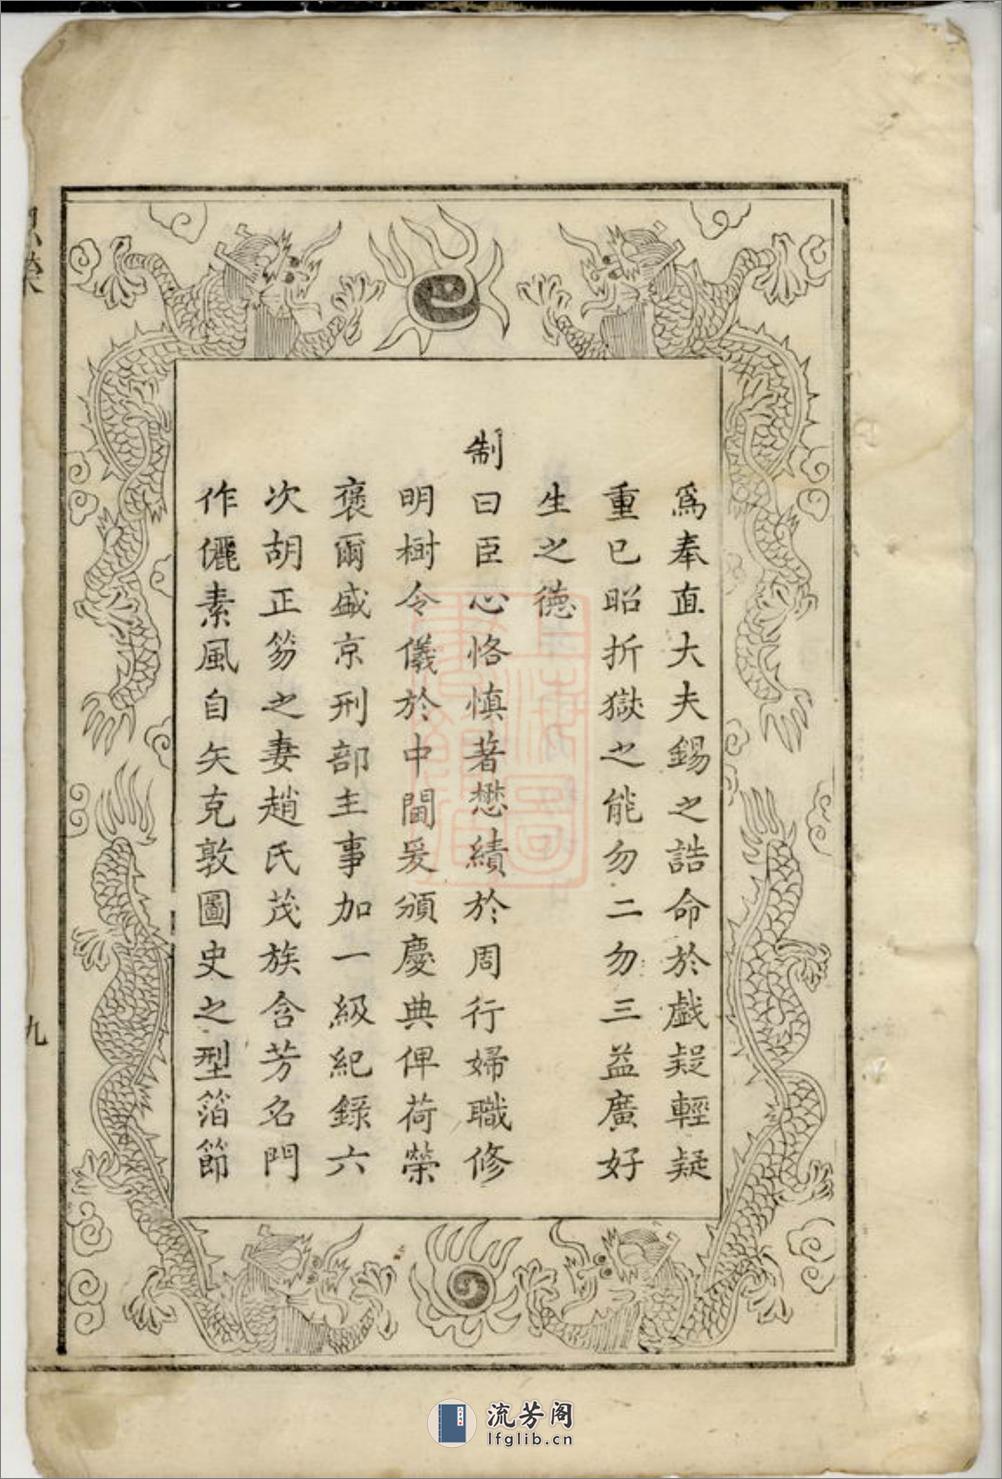 爲奉直大夫錫之誥命於戲疑輕疑
重已昭折獄之能勿二勿三益廣好
生之德
制曰臣心恪慎著懋績於周行婦職修
明樹令儀於中閫爰頒慶典俾荷榮
褒爾盛京刑部主事加一級紀錄六
次胡正笏之妻趙氏茂族含芳名門
作儷素風自矢克敦圖史之型箔節
榮
九
上海圖書館藏
流芳阁
lfglib.cn